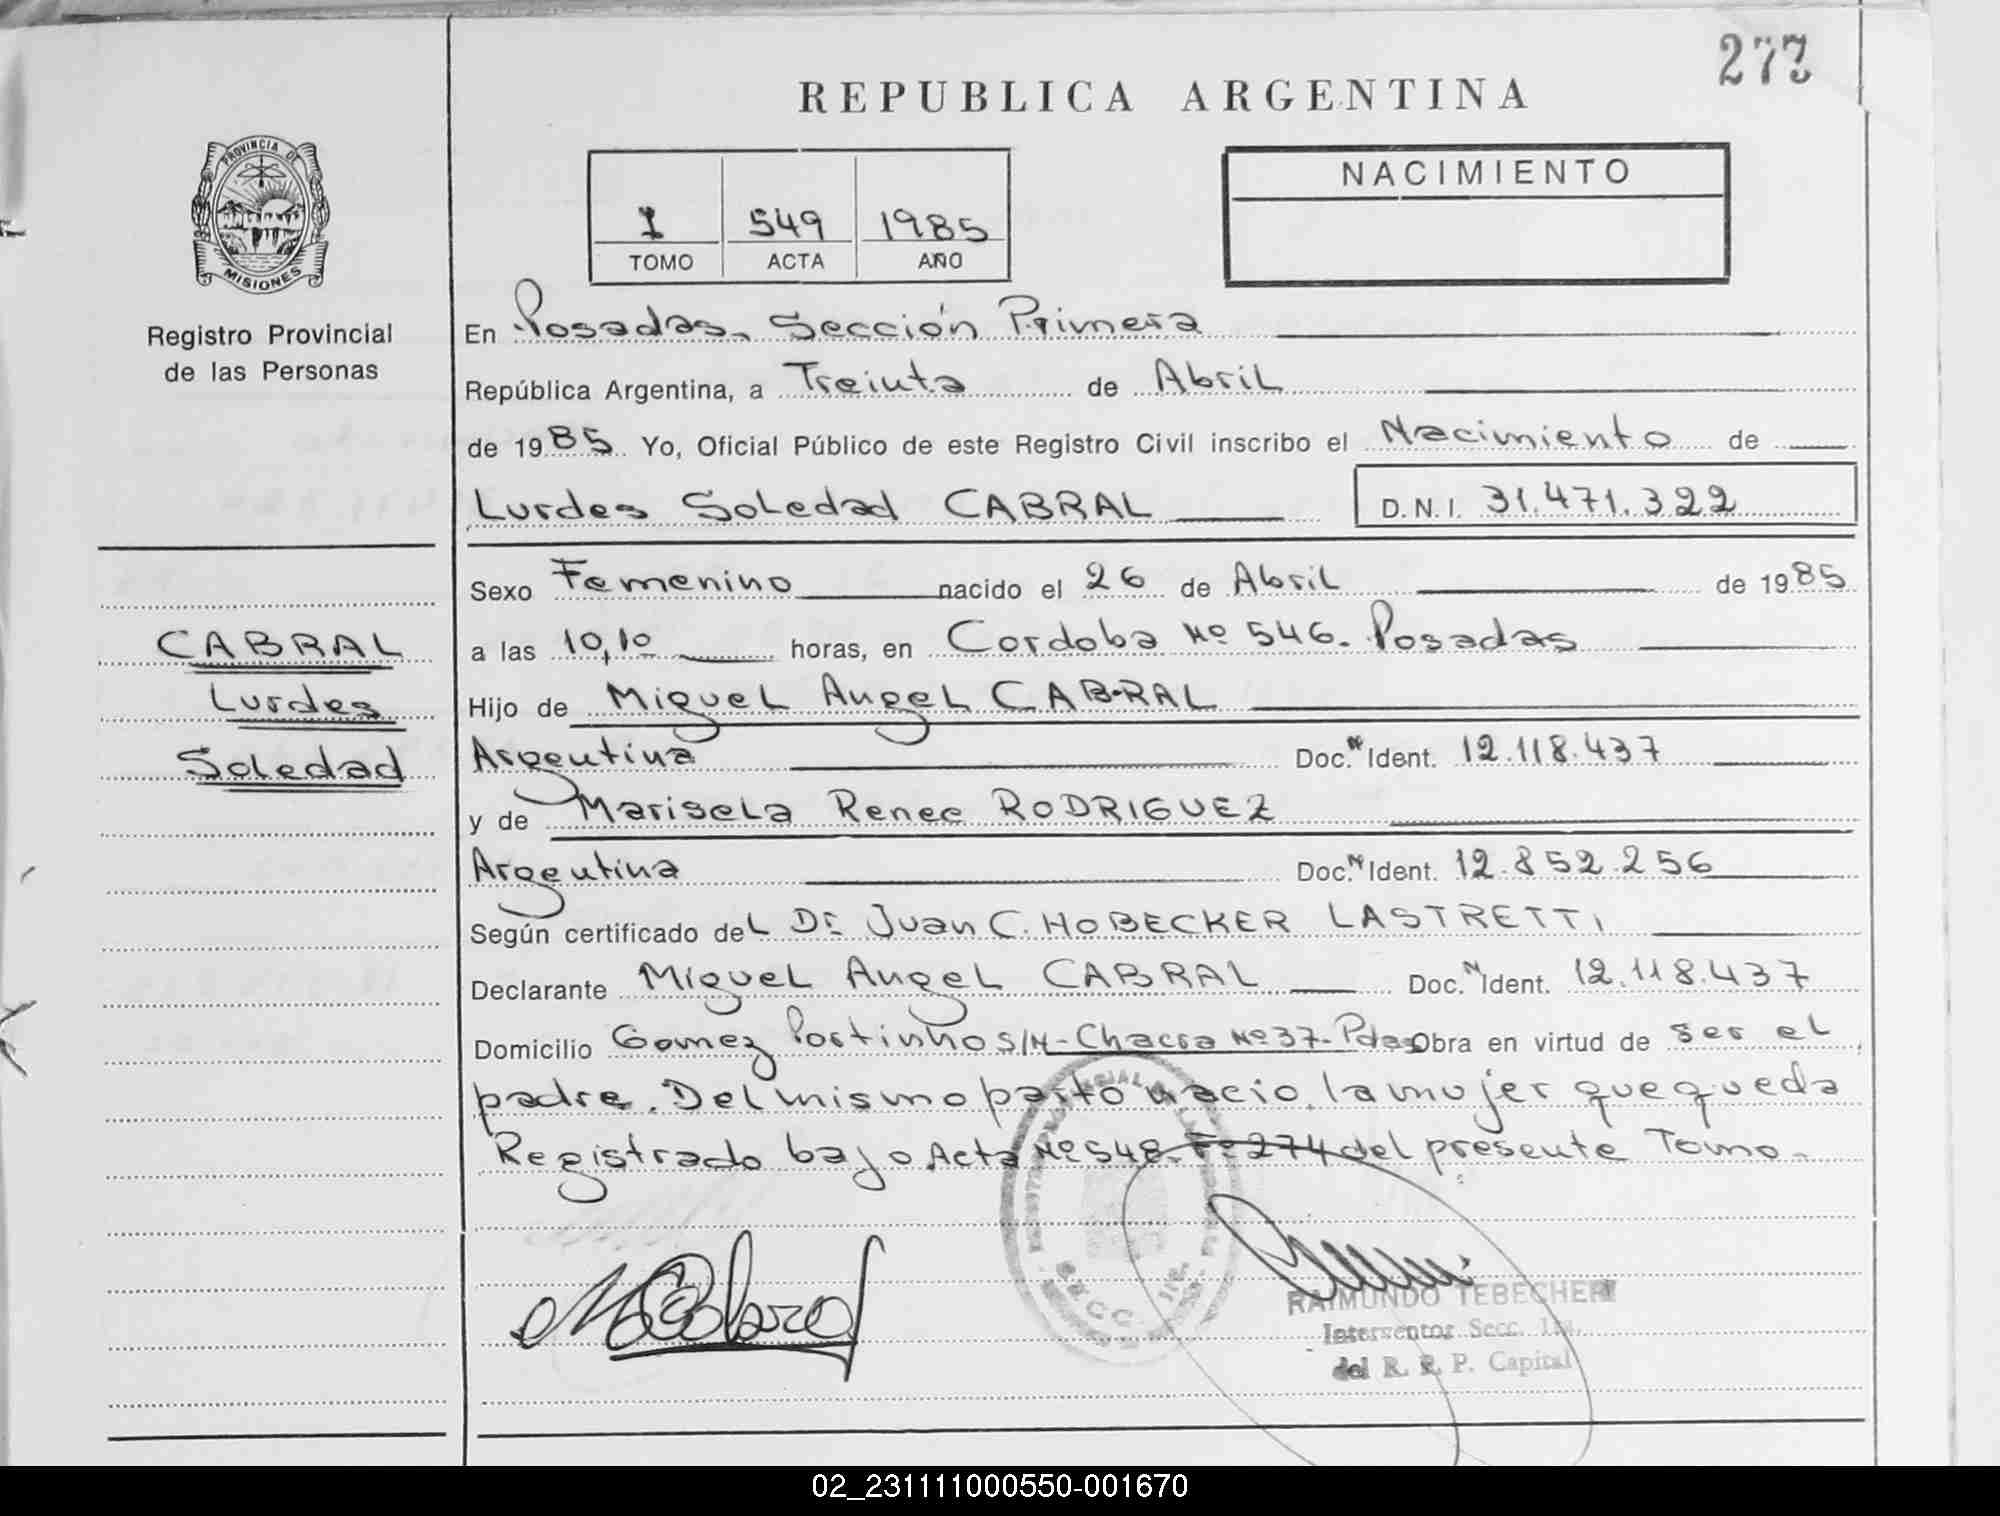 277
REPUBLICA ARGENTINA
PROVINCIA DE
MISIONES
Registro Provincial
de las Personas
1 549 1985
TOMO ACTA AÑO
NACIMIENTO
En Posadas, Sección Primera
República Argentina, a Treinta de Abril
de 1985 Yo, Oficial Público de este Registro Civil inscribo el Nacimiento de
Lurdes Soledad CABRAL D.N.I. 31.471.322
Sexo Femenino nacido el 26 de Abril de 1985
CABRAL
Lurdes
Soledad
a las 10,10 horas, en Cordoba Nº 546. Posadas
Hijo de Miguel Angel CABRAL
Argentina Doc. N Ident. 12.118.437
y de Marisela Renee RODRIGUEZ
Argentina Doc. N Ident. 12.852.256
Según certificado del Dr. Juan C. HOBECKER LASTRETTI
Declarante Miguel Angel CABRAL Doc. N Ident. 12.118.437
Domicilio Gomez Portinho S/N - Chacra Nº 37 - Pdas Obra en virtud de ser el
padre. Del mismo parto nacio la mujer que queda
Registrado bajo Acta Nº 548 - Fº 274 del presente Tomo.
SECC. 1ra.
RAIMUNDO TEBECHERI
Interventor Secc. 1ra.
del R. R. P. Capital
02_231111000550-001670